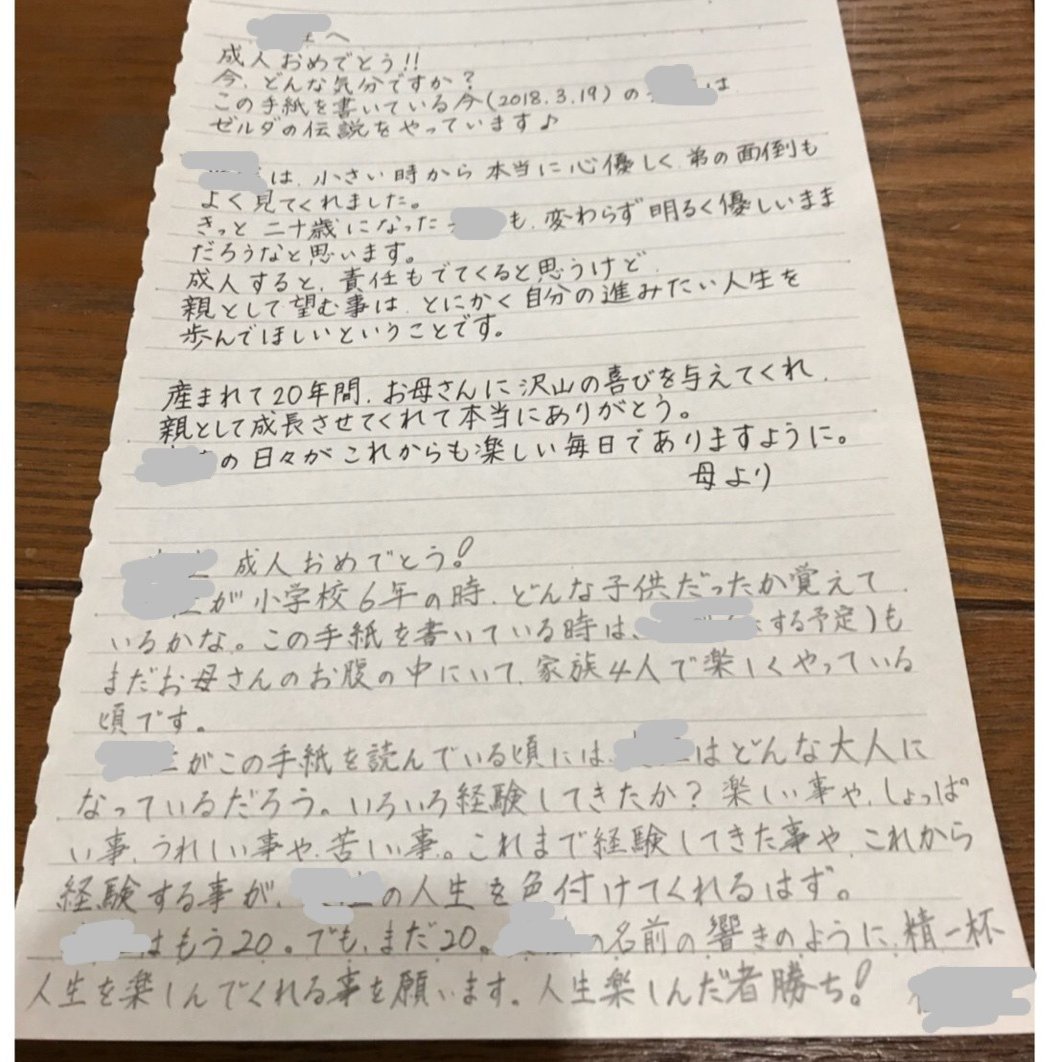 へ
成人おめでとう!!
今、どんな気分ですか?
この手紙を書いている今(2018.3.19)の は
ゼルダの伝説をやっています♪
は、小さい時から本当に心優しく、弟の面倒も
よく見てくれました。
きっと二十歳になった も、変わらず明るく優しいまま
だろうなと思います。
成人すると、責任もでてくると思うけど、
親として望む事は、とにかく自分の進みたい人生を
歩んでほしいということです。
産まれて20年間、お母さんに沢山の喜びを与えてくれ、
親として成長させてくれて本当にありがとう。
の日々がこれからも楽しい毎日でありますように。
母より
成人おめでとう!
が小学校6年の時、どんな子供だったか覚えて
いるかな。この手紙を書いている時は、 する予定)も
まだお母さんのお腹の中にいて、家族4人で楽しくやっている
頃です。
がこの手紙を読んでいる頃には、 はどんな大人に
なっているだろう。いろいろ経験してきたか?楽しい事や、しょっぱ
い事、うれしい事や、苦しい事。これまで経験してきた事や、これから
経験する事が、 の人生を色付けてくれるはず。
はもう20。でも、まだ20。 の名前の響きのように、精一杯
人生を楽しんでくれる事を願います。人生楽しんだ者勝ち!